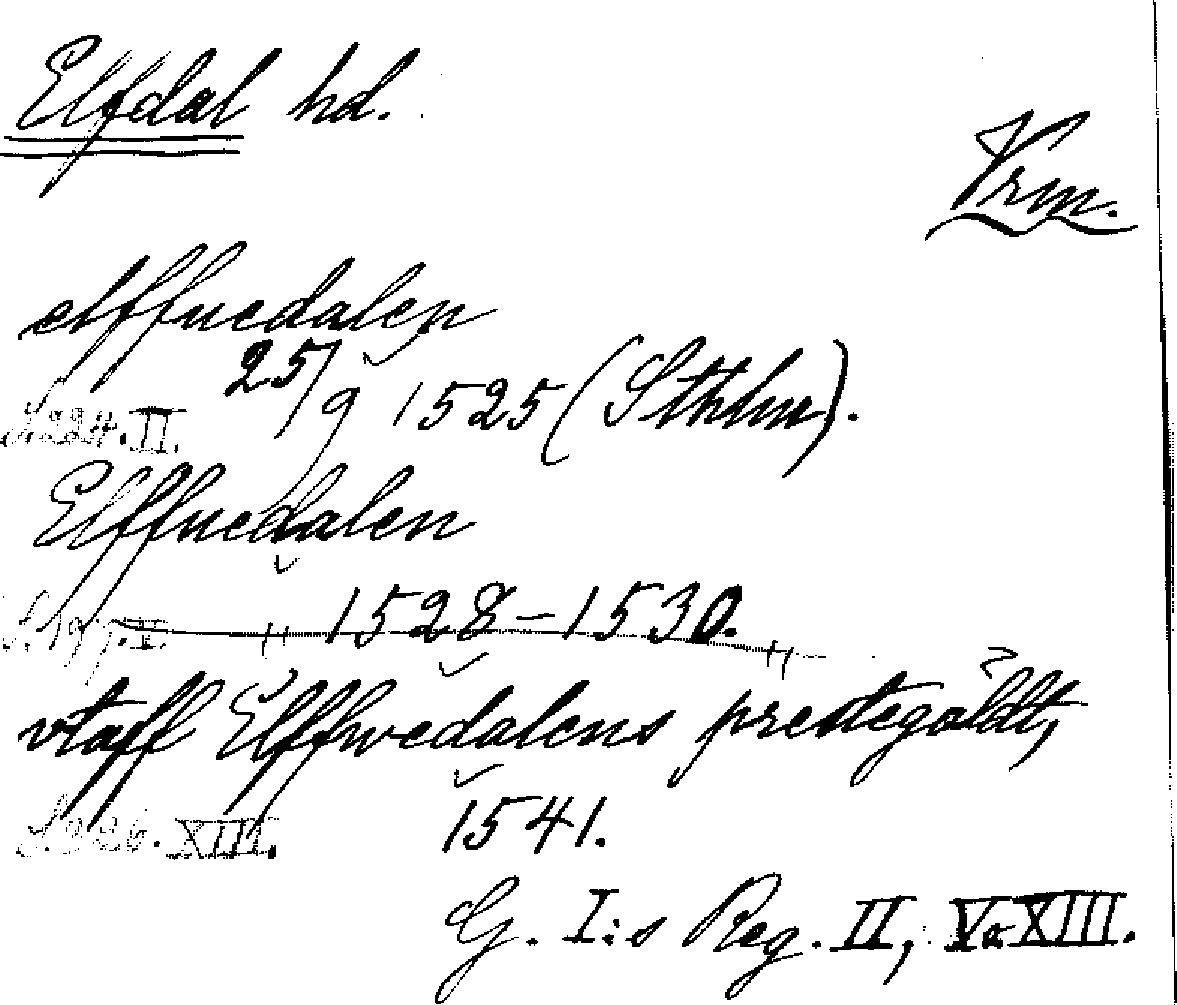 Elfdal hd.
Vrm.
elffuedalen
S. 224. II. 25/9 1525 (Sthlm).
Elffuedalen
S. 197. V. 1528-1530.
vtaff Elffwedalens prestegäldt,
S. 226. XIII. 1541.
G. I:s Reg. II, V o. XIII.